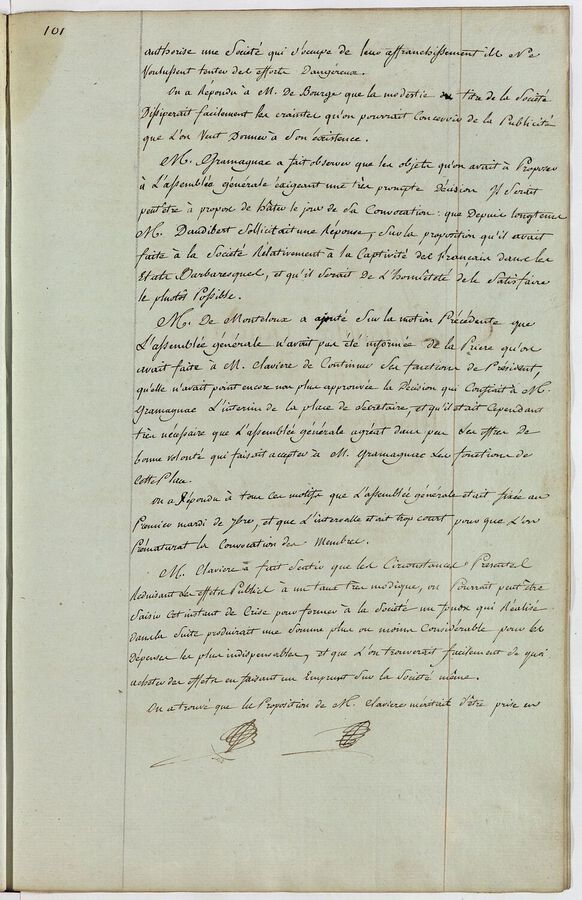 101
authorise une Société qui s'occupe de leur affranchissement ils Ne
Voulussent tenter des efforts Dangereux.
On a Répondu à M. De Bourge que la modestie du titre de la Société
Dissiperait facilement les craintes qu'on pourrait Concevoir de la Publicité
que L'on Veut Donner à Son éxistence.
M. Gramagnac a fait observer que les objets qu'on avait à Proposer
à L'assemblée générale éxigeant une très prompte Décision Il Serait
peut être à propos de hâter le jour de Sa Convocation : que Depuis longtems
M. Daudibert Sollicitait une Réponse, Sur la proposition qu'il avait
faite à la Société Rélativement à la Captivité des Français dans les
Etats Barbaresques, et qu'il Serait de L'honnêteté de le Satisfaire
le plustôt Possible.
M. De Montcloux a ajouté Sur la motion Précédente que
L'assemblée générale n'avait pas été informée de la Priere qu'on
avait faite à M. Claviere de Continuer Ses fonctions de Président,
qu'elle n'avait point encore non plus approuvée la Décision qui Confiait à M.
Gramagnac L'interim de la place de Secretaire, et qu'il était Cependant
très nécessaire que L'assemblée générale agréat dans peu Les offres de
bonne volonté qui faisait accepter à M. Gramagnac Les fonctions de
Cette Place.
On a Répondu à tous Ces motifs que L'assemblée générale était fixée au
Premier mardi de 7bre, et que L'intervalle était trop court pour que L'on
Prématurat la Convocation des Membres.
M. Claviere a fait Sentir que les Circonstances Présentes
Réduisant Les effets Publics à un taux très modique, on Pourrait peut être
Saisir Cet instant de Crise pour former à la Société un fonds qui Réalisé
dans la Suite produirait une Somme plus ou moins Considérable pour les
Dépenses les plus indispensables, et que L'on trouverait facilement de quoi
acheter des effets en faisant un Emprunt Sur la Société même.
On a trouvé que la Proposition de M. Claviere méritait d'être prise en